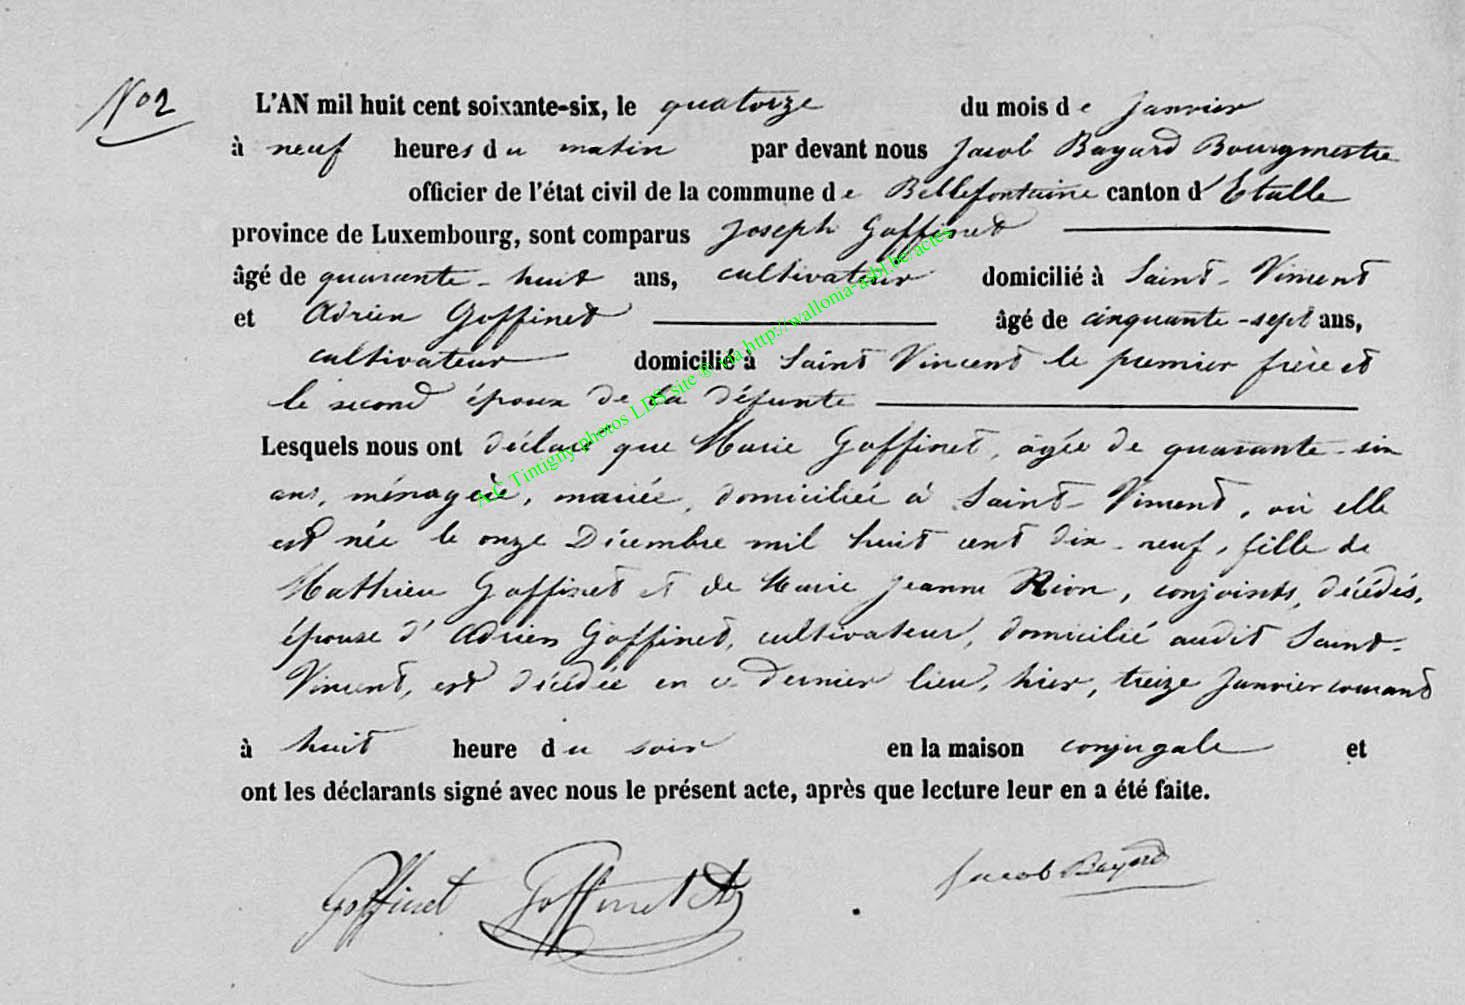 No 2
L'AN mil huit cent soixante-six, le quatorze du mois de Janvier
à neuf heures du matin par devant nous Jacob Bayard Bourgmestre
officier de l'état civil de la commune de Bellefontaine canton d'Etalle
province de Luxembourg, sont comparus Joseph Goffinet
âgé de quarante-huit ans, cultivateur domicilié à Saint-Vincent
et Adrien Goffinet âgé de cinquante-sept ans,
cultivateur domicilié à Saint Vincent le premier frère et
le second époux de la défunte
Lesquels nous ont déclaré que Marie Goffinet, âgée de quarante-six
ans, ménagère, mariée, domiciliée à Saint-Vincent, où elle
est née le onze Décembre mil huit cent dix-neuf, fille de
Mathieu Goffinet et de Marie Jeanne Rion, conjoints, décédés,
épouse d'Adrien Goffinet, cultivateur, domicilié audit Saint-
Vincent, est décédée en ce dernier lieu, hier, treize Janvier courant
à huit heure du soir en la maison conjugale et
ont les déclarants signé avec nous le présent acte, après que lecture leur en a été faite.
Goffinet Goffinet Ad Jacob Bayard
A.C Tintigny photos LDS site ® via http://wallonia-asbl.be/actes